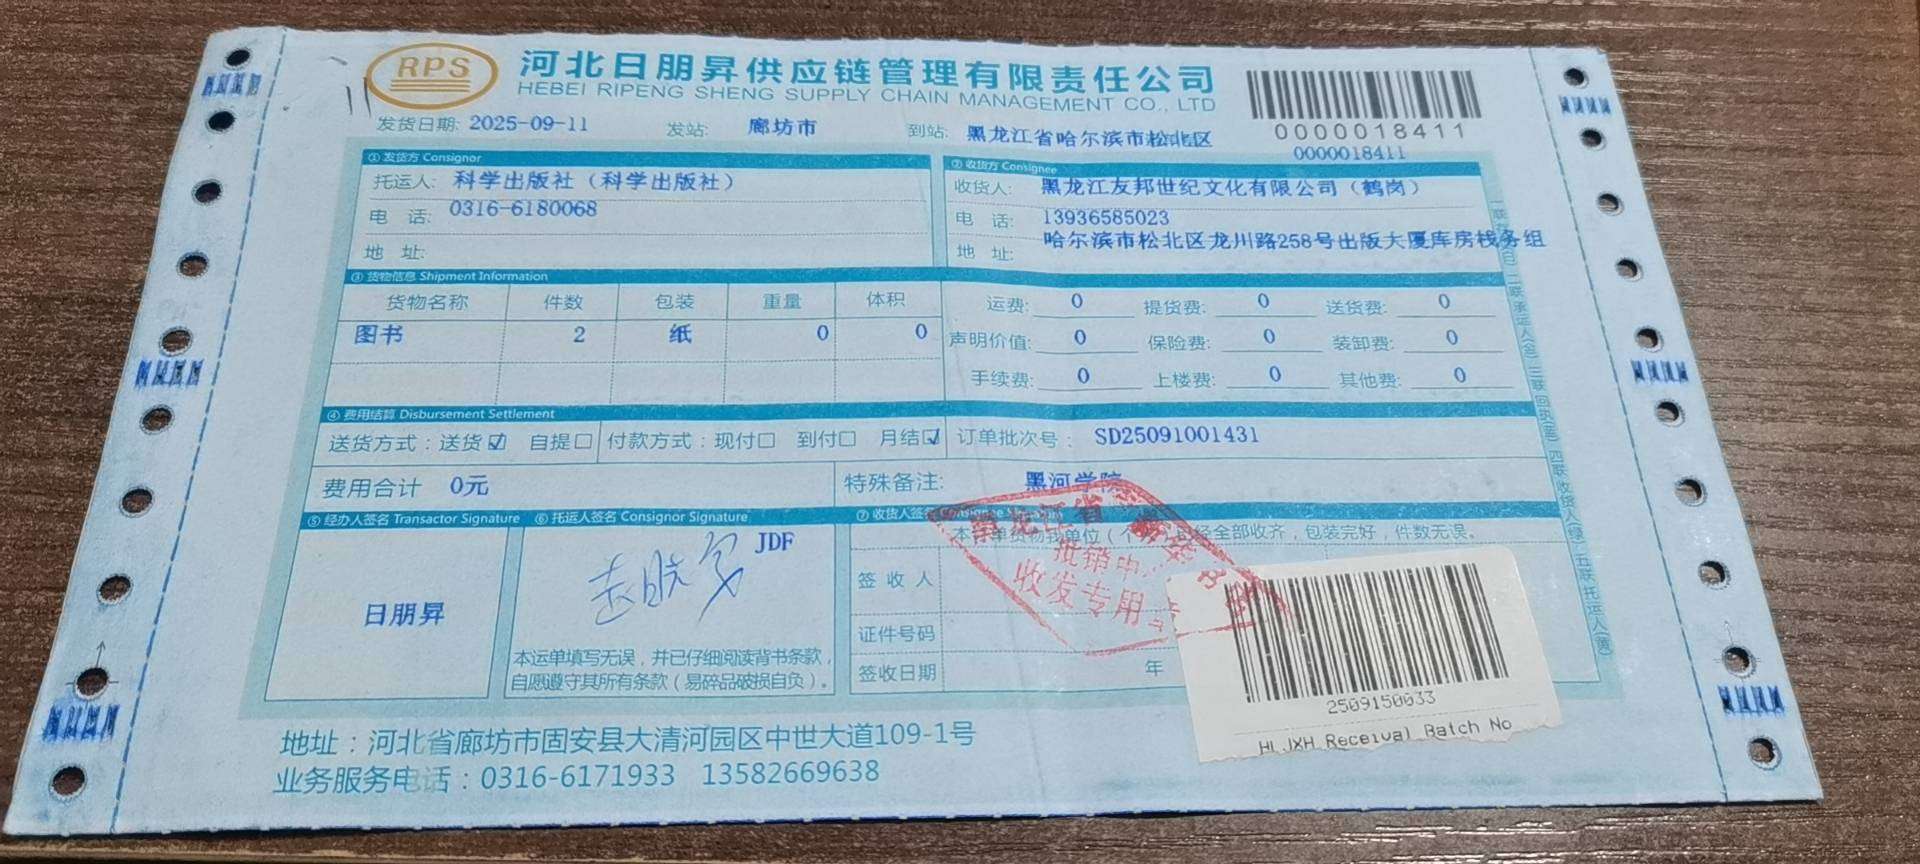 RPS
河北日朋昇供应链管理有限责任公司
HEBEI RIPENG SHENG SUPPLY CHAIN MANAGEMENT CO., LTD
0000018411
0000018411
发货日期: 2025-09-11 发站: 廊坊市 到站: 黑龙江省哈尔滨市松北区
① 发货方 Consignor
托运人: 科学出版社（科学出版社）
电 话: 0316-6180068
地 址:
② 收货方 Consignee
收货人: 黑龙江友邦世纪文化有限公司（鹤岗）
电 话: 13936585023
地 址: 哈尔滨市松北区龙川路258号出版大厦库房栈务组
③ 货物信息 Shipment Information
货物名称 件数 包装 重量 体积
图书 2 纸 0 0
运费: 0 提货费: 0 送货费: 0
声明价值: 0 保险费: 0 装卸费: 0
手续费: 0 上楼费: 0 其他费: 0
④ 费用结算 Disbursement Settlement
送货方式：送货☑ 自提□ 付款方式：现付□ 到付□ 月结☑ 订单批次号： SD25091001431
费用合计 0元 特殊备注: 黑河学院
⑤ 经办人签名 Transactor Signature
日朋昇
⑥ 托运人签名 Consignor Signature
JDF
本运单填写无误，并已仔细阅读背书条款，
自愿遵守其所有条款（易碎品破损自负）。
⑦ 收货人签名 Consignee
经全部收齐，包装完好，件数无误。
签 收 人
证件号码
签收日期 年
黑龙江省
批销中
收发专用
2509150033
HLJXH Receival Batch No
地址：河北省廊坊市固安县大清河园区中世大道109-1号
业务服务电话：0316-6171933 13582669638